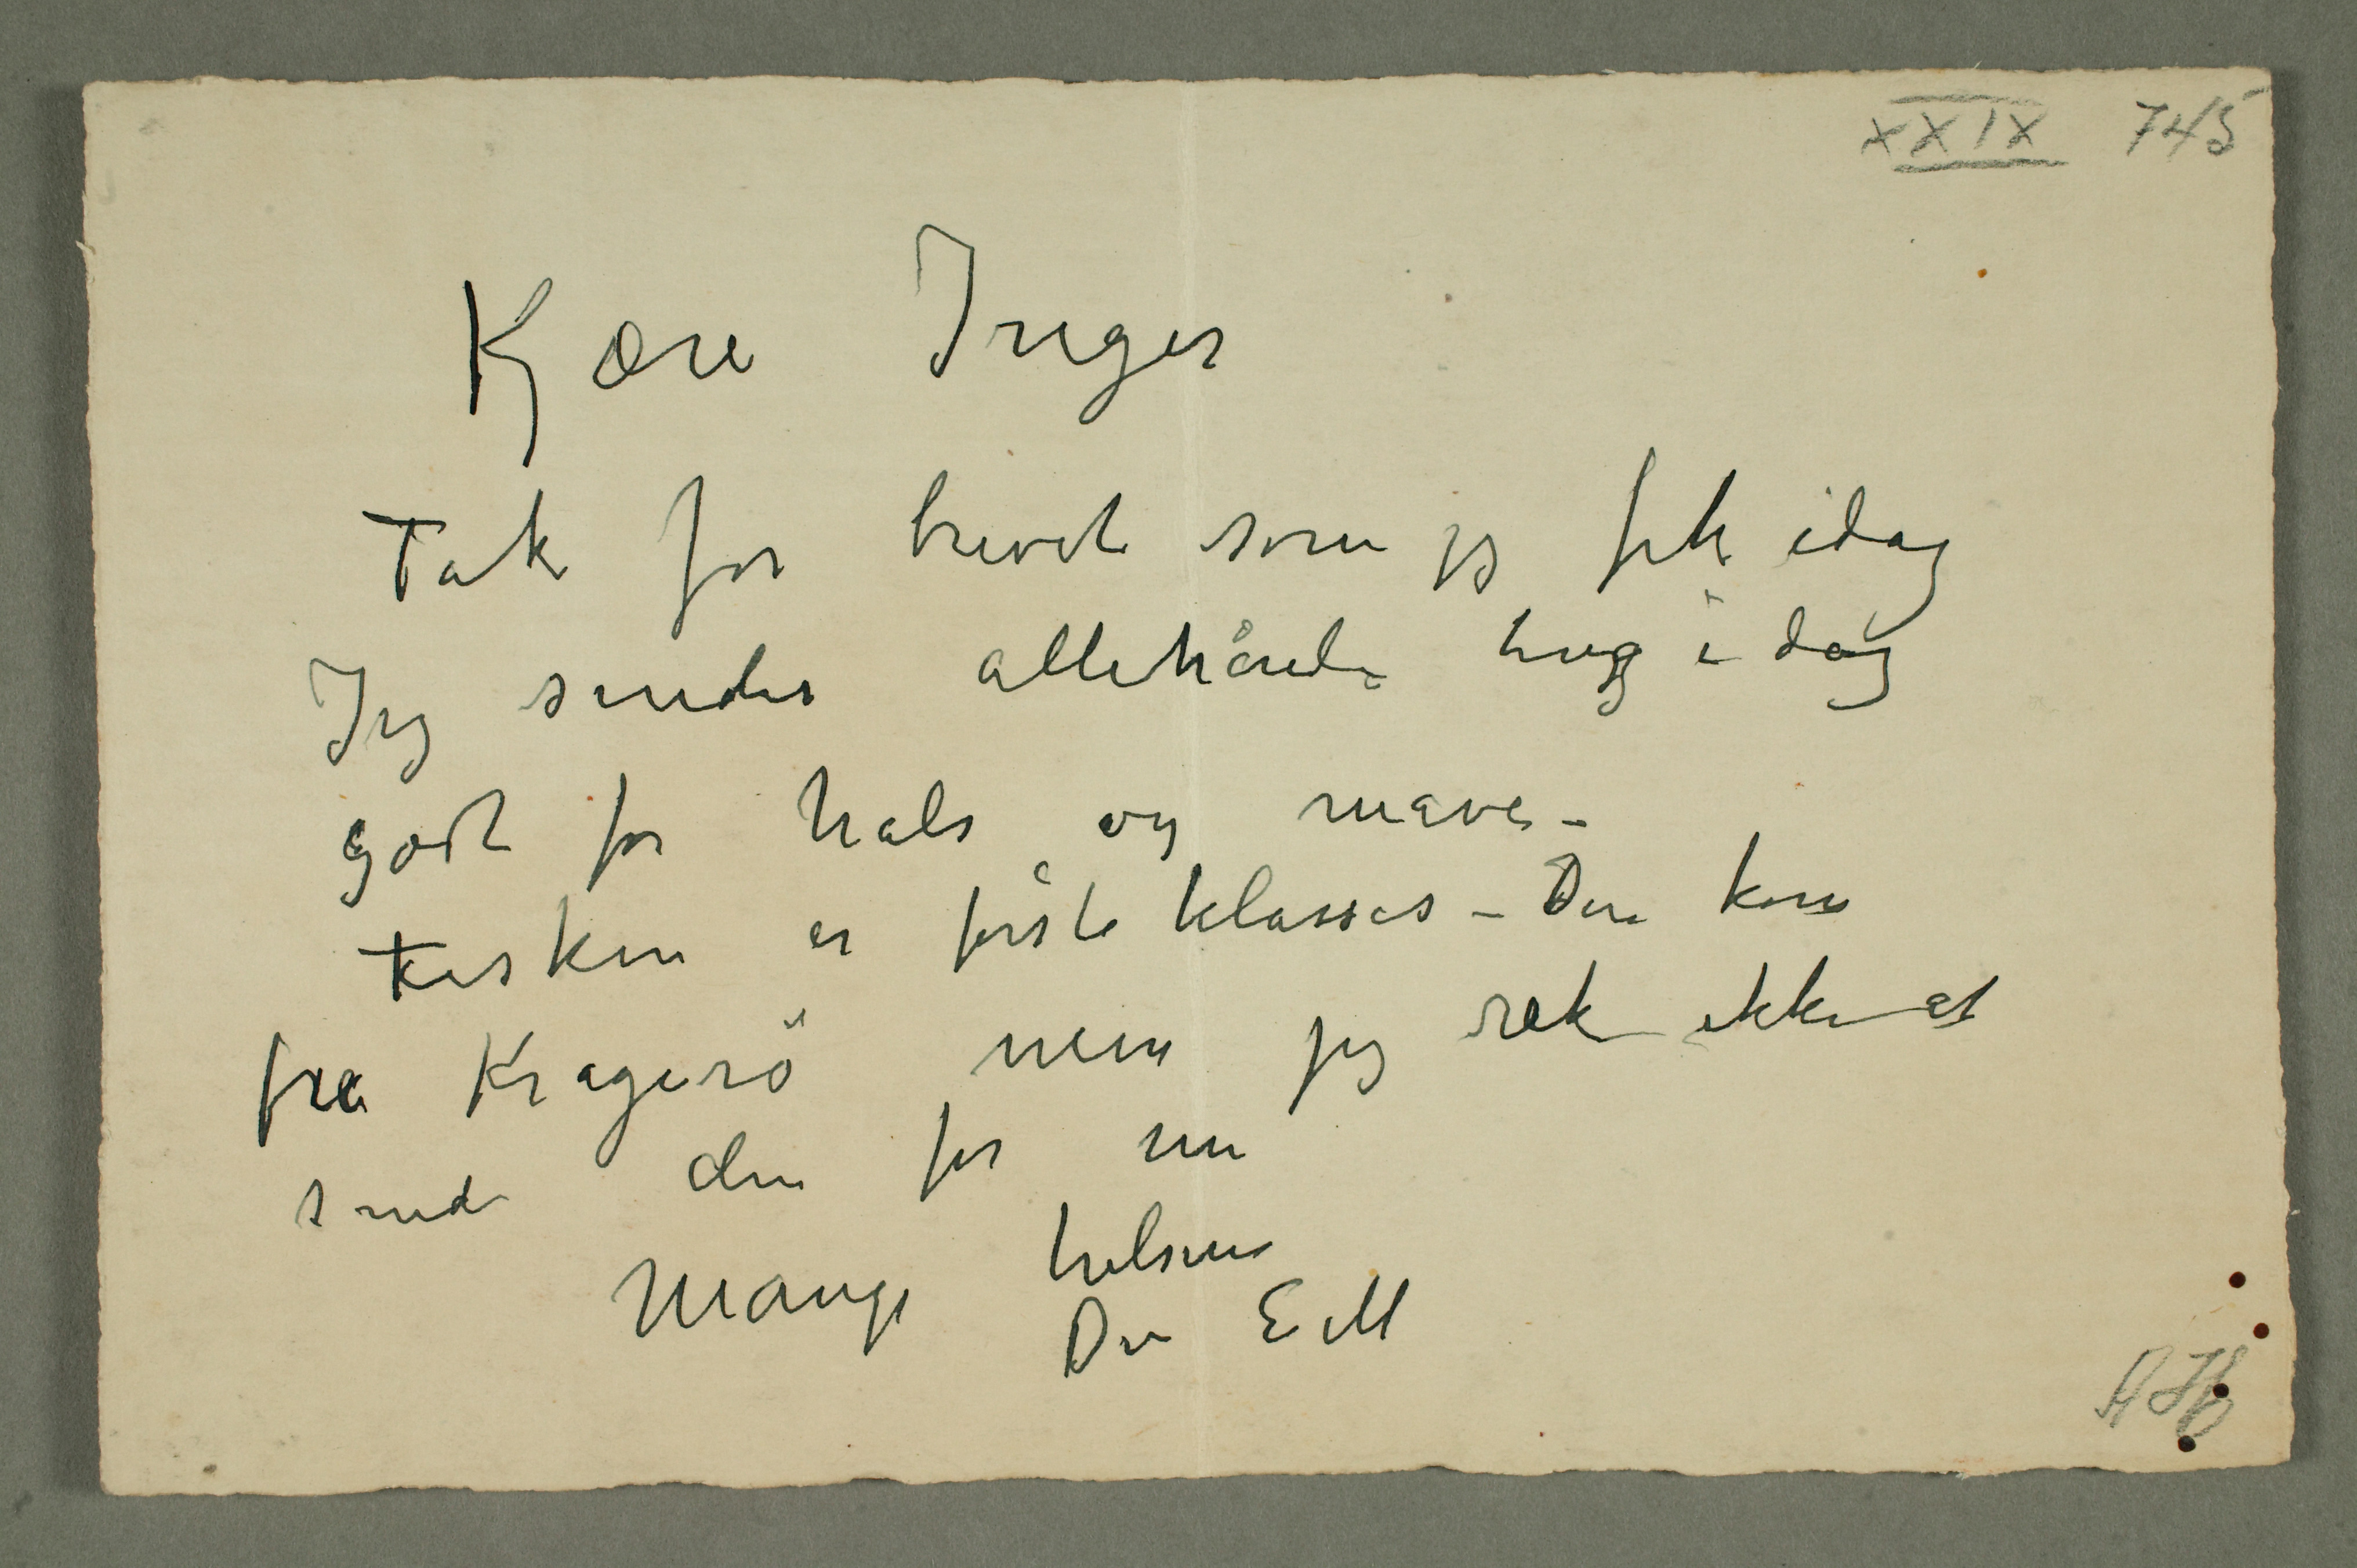 XXIX 745
Kjære Inger
Tak for brevet som jeg fik idag
Jeg sender allehånde ting i dag
godt for hals og mave –
Fisken er første klasses – Den kom
fra Kragerö men jeg rak ikke at
sende den før nu
Mange hilsener
Din E M